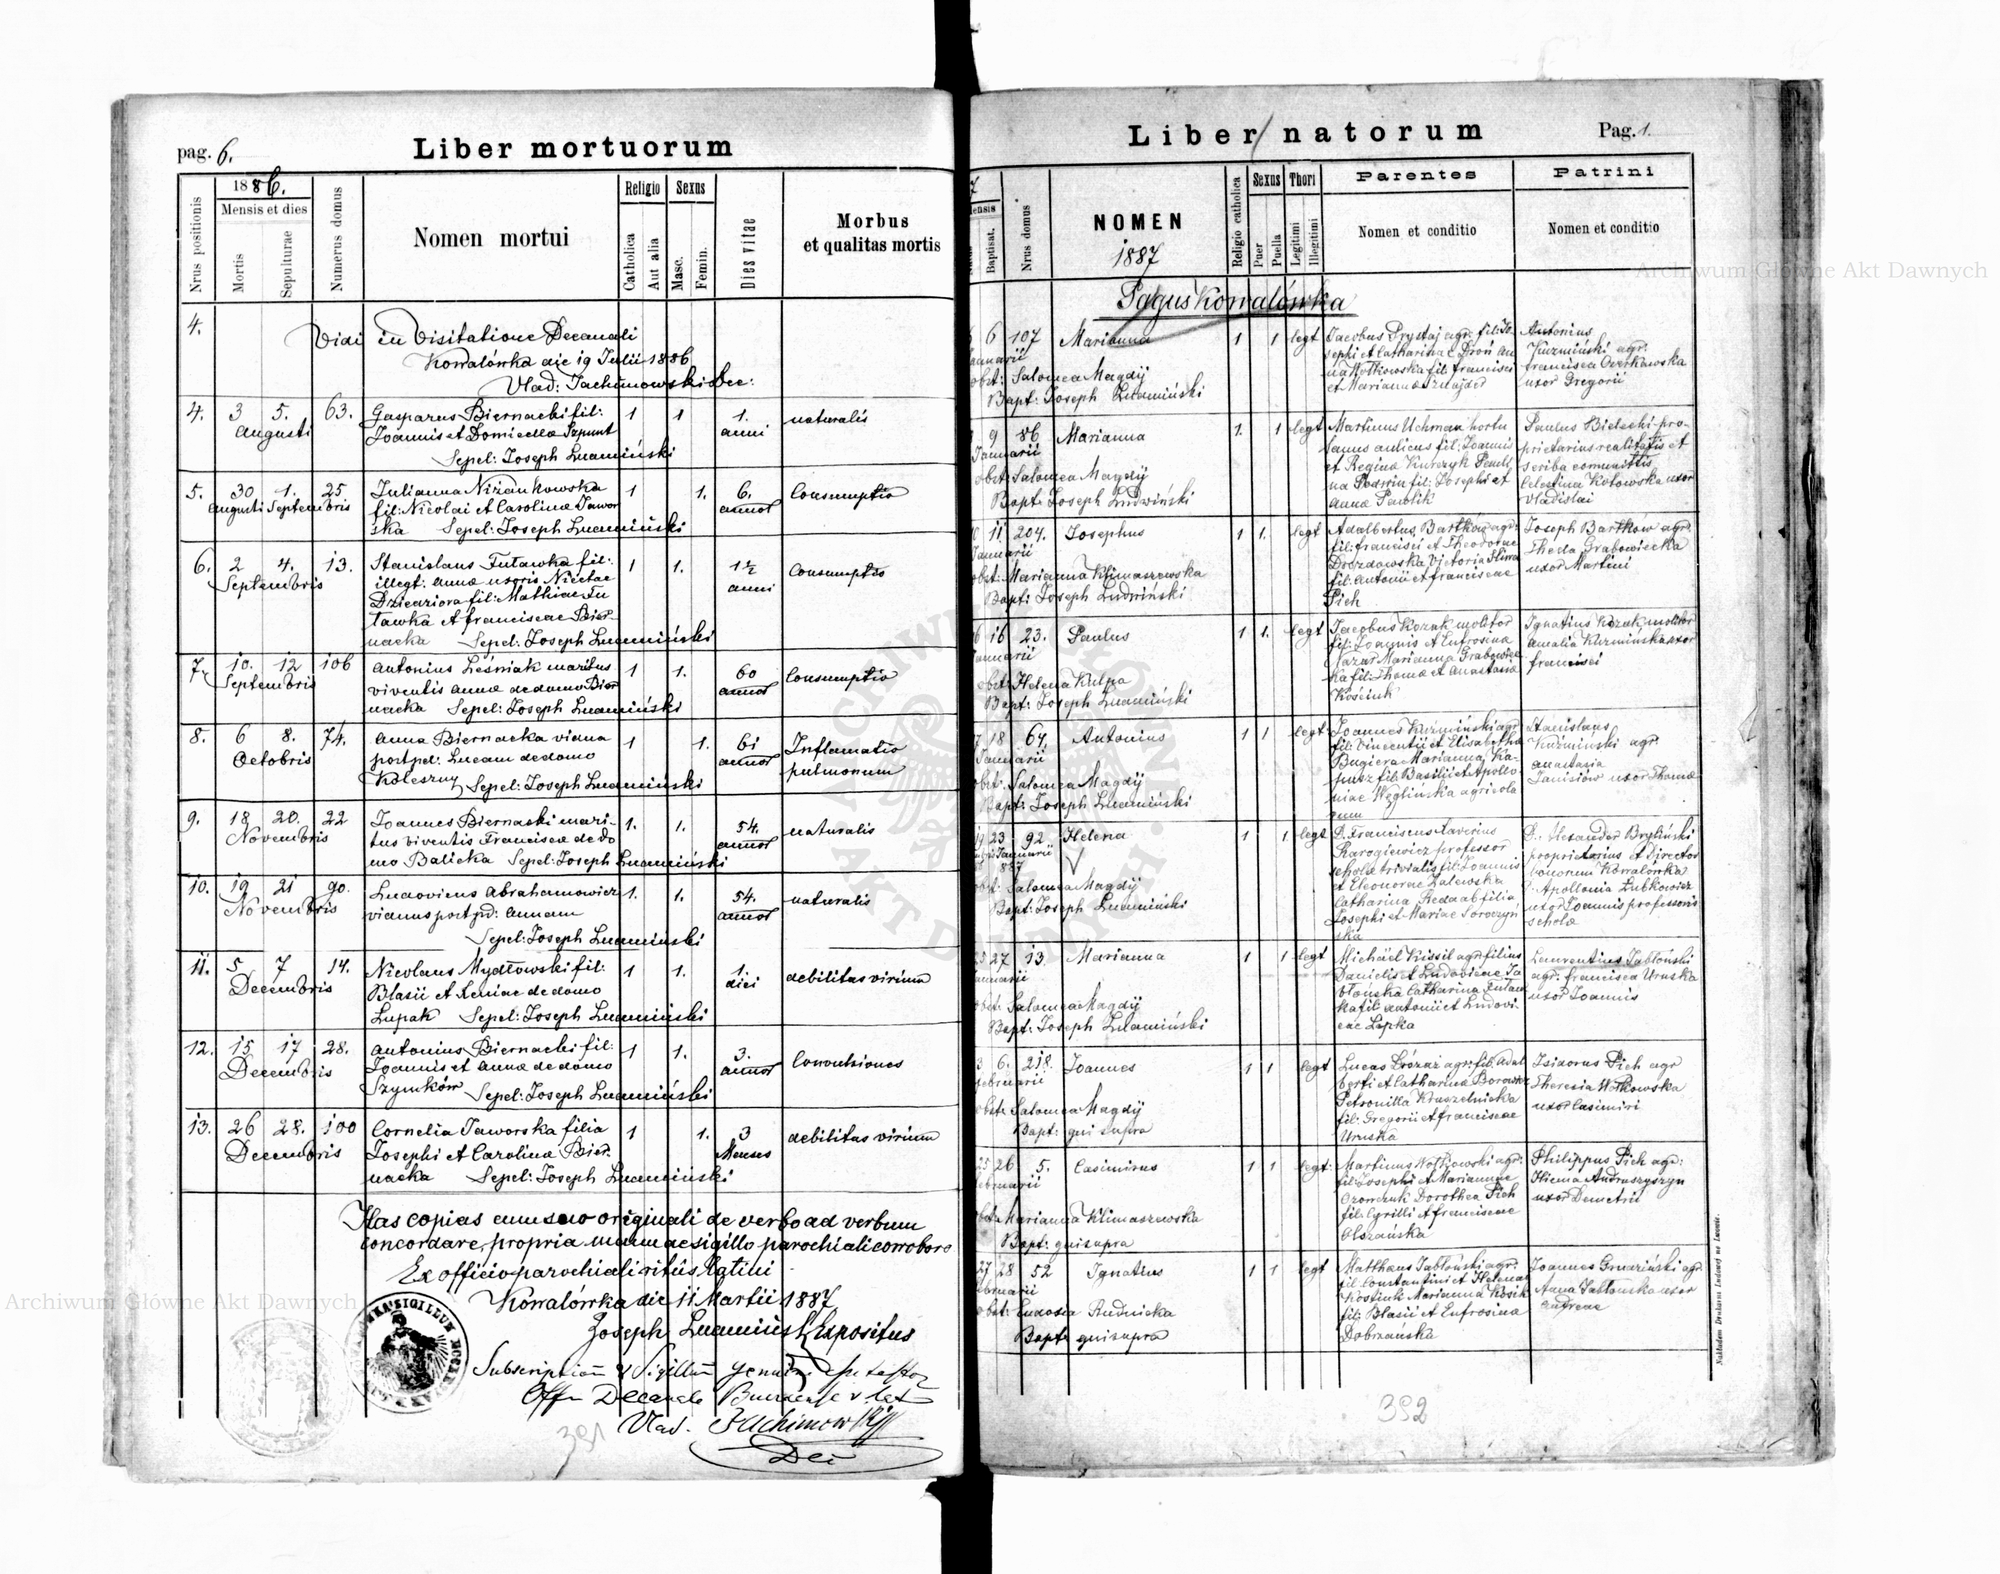 pag. 6.
Liber mortuorum
Nrus positionis
1886.
Mensis et dies
Mortis
Sepulturae
Numerus domus
Nomen mortui
Religio
Catholica
Aut alia
Sexus
Masc.
Femin.
Dies vitae
Morbus
et qualitas mortis
4.
Vidi in Visitatione Decanali
Kowalówka die 19 Julii 1886
Vlad: Jachimowski Dec:
4. 3 5. 63. Gasparus Biernacki fil: 1 1 1. naturalis
Augusti Joannis et Domicellae Szpunt anni
Sepel: Joseph Ludmiński
5. 30 1. 25. Julianna Niżankowska 1 1. 6. Consumptio
Augusti Septembris fil: Nicolai et Carolinae Jawor annor
ska Sepel: Joseph Ludmiński
6. 2 4. 13. Stanislaus Tutawka fil: 1 1. 1½ Consumptio
Septembris illegt: Annae uxoris Nicetae anni
fil: Mathiae Tu
tawka et Franciscae Bier
nacka Sepel: Joseph Ludmiński
7. 10. 12 106 Antonius Leśniak maritus 1 1. 60 Consumptio
Septembris viventis Annae de domo Bier annor
nacka Sepel: Joseph Ludmiński
8. 6 8. 74. Anna Biernacka vidua 1 1. 61 Inflamatio
Octobris post pd: Lucam de domo annor pulmonum
Koleszny Sepel: Joseph Ludmiński
9. 18 20. 22 Joannes Biernacki mari- 1. 1. 54. naturalis
Novembris tus viventis Franciscae de do annor
mo Balicka Sepel: Joseph Ludmiński
10. 19 21 90. Ludovicus Abrahamowicz 1. 1. 54. naturalis
Novembris viduus post pd: Annam annor
Sepel: Joseph Ludmiński
11. 5 7 14. Nicolaus Mydłowski fil: 1 1. 1. debilitas virium
Decembris Blasii et Xeniae de domo diei
Łupak Sepel: Joseph Ludmiński
12. 15 17 28. Antonius Biernacki fil: 1 1. 3. Convulsiones
Decembris Joannis et Annae de domo annor
Szymków Sepel: Joseph Ludmiński
13. 26 28. 100 Cornelia Jaworska filia 1 1. 3 debilitas virium
Decembris Josephi et Carolinae Bier Menses
nacka Sepel: Joseph Ludmiński
Has copias cum suo originali de verbo ad verbum
concordare, propria manu ac sigillo parochiali corroboro
Ex officio parochiali ritûs latini
Kowalówka die 11 Martii 1887
Joseph Ludmiński Expositus
Offm Decanale
Vlad. Jachimowski
Dec
391
Liber natorum
Pag. 1.
Baptisat.
Nrus domus
NOMEN
1887
Religio catholica
Sexus
Puer
Puella
Thori
Legitimi
Illegitimi
Parentes
Nomen et conditio
Patrini
Nomen et conditio
Pagus Kowalówka
6 107 Marianna 1 1 legt Jacobus Prystaj agr: fil: Jo- Antonius
sephi et Catharinae Droń An Kuźmiński agr:
na Wołkowska fil: Francisci Francisca Owerkowska
et Mariannae Sznajder uxor Gregorii
obst: Salomea Magdij
Bapt: Joseph Ludmiński
9 86 Marianna 1. 1 legt Martinus Uchman hortu Paulus Bielecki pro-
lanus aulicus fil: Joannis prietarius realitatis et
et Regina scriba comunittis
fil: Josephi et Celestina Kotowska uxor
Anna Pawlik Vladislai
obst: Salomea Magdij
Bapt: Joseph Ludwiński
11. 204. Josephus 1 1. legt Adalbertus Bartków agr: Joseph Bartków agr:
fil: Francisci et Theodorae Thecla Grabowiecka
Drozdowska Victoria uxor Martini
fil: Antonii et Franciscae
Pich
obst: Marianna Klimaszewska
Bapt: Joseph Ludwiński
16 23. Paulus 1 1. legt Jacobus Kozak molitor Ignatius Kozak molitor
fil: Joannis et Eufrosina Amalia Kuźmińska uxor
Mazur Marianna Grabowiec Francisci
ka fil: Thomae et Anastasiae
Kościuk
obst: Helena Kulpa
Bapt: Joseph Ludmiński
18 64 Antonius 1 1 legt: Joannes Kuźmiński agr Stanislaus
fil: Vincentii et Elisabetha Kuźminski agr.
Bugiera Marianna Ka- Anastasia
pusz fil: Basilii et Apollo- Janisiów uxor Thomae
niae Węglińska agricola
rum
obst: Salomea Magdij
Bapt: Joseph Ludmiński
23 92 Helena 1 1 legt D. Franciscus Xaverius D. Alexander Bryliński
Rarogiewicz professor proprietarius et Director
scholae trivialis fil: Joannis bonorum Kowalówka
et Eleonorae Zalewska D. Apollonia Lubkowicz
Catharina filia uxor Joannis professoris
Josephi et Mariae Soroczyń scholae
ska
Salomea Magdij
Bapt: Joseph Ludmiński
27 13. Marianna 1 1 legt Michael Kissil agr: filius Laurentius Jabłoński
Danielis et Ludovicae Ja agr: Francisca Uruska
błońska Catharina Tutaw uxor Joannis
ka fil: Antonii et Ludovi-
cae Łapka
obst: Salomea Magdij
Bapt: Joseph Ludmiński
3 6. 218. Joannes 1 1 legt Lucas agr: fil: Adal Isidorus Pich agr
Februarii berti et Catharina Borowicz Theresia Wołkowska
Petronilla Kruszelnicka uxor Casimiri
fil: Gregorii et Franciscae
Uruska
obst: Salomea Magdij
Bapt: qui supra
25 26 5. Casimirus 1 1 legt: Martinus Wołkowski agr: Philippus Pich agr:
fil: Josephi et Mariannae Andruszyszyn
Dorothea Pich uxor Demetrii
fil: Cyrilli et Franciscae
Olszańska
Marianna Klimaszewska
Bapt: qui supra
27 28 52 Ignatius 1 1 legt Matthaus Jabłoński agr: Joannes Gruziński agr
fil: Constantini et Helenae Anna Jabłonska uxor
Kostiuk Marianna Kosik Andreae
fil: Blasii et Eufrosina
Dobrzańska
obst: Eudoxia Rudnicka
Bapt: qui supra
392
Nakładem Drukarni Ludowej we Lwowie.
Archiwum Główne Akt Dawnych
Archiwum Główne Akt Dawnych
ARCHIWUM GŁÓWNE AKT DAWNYCH